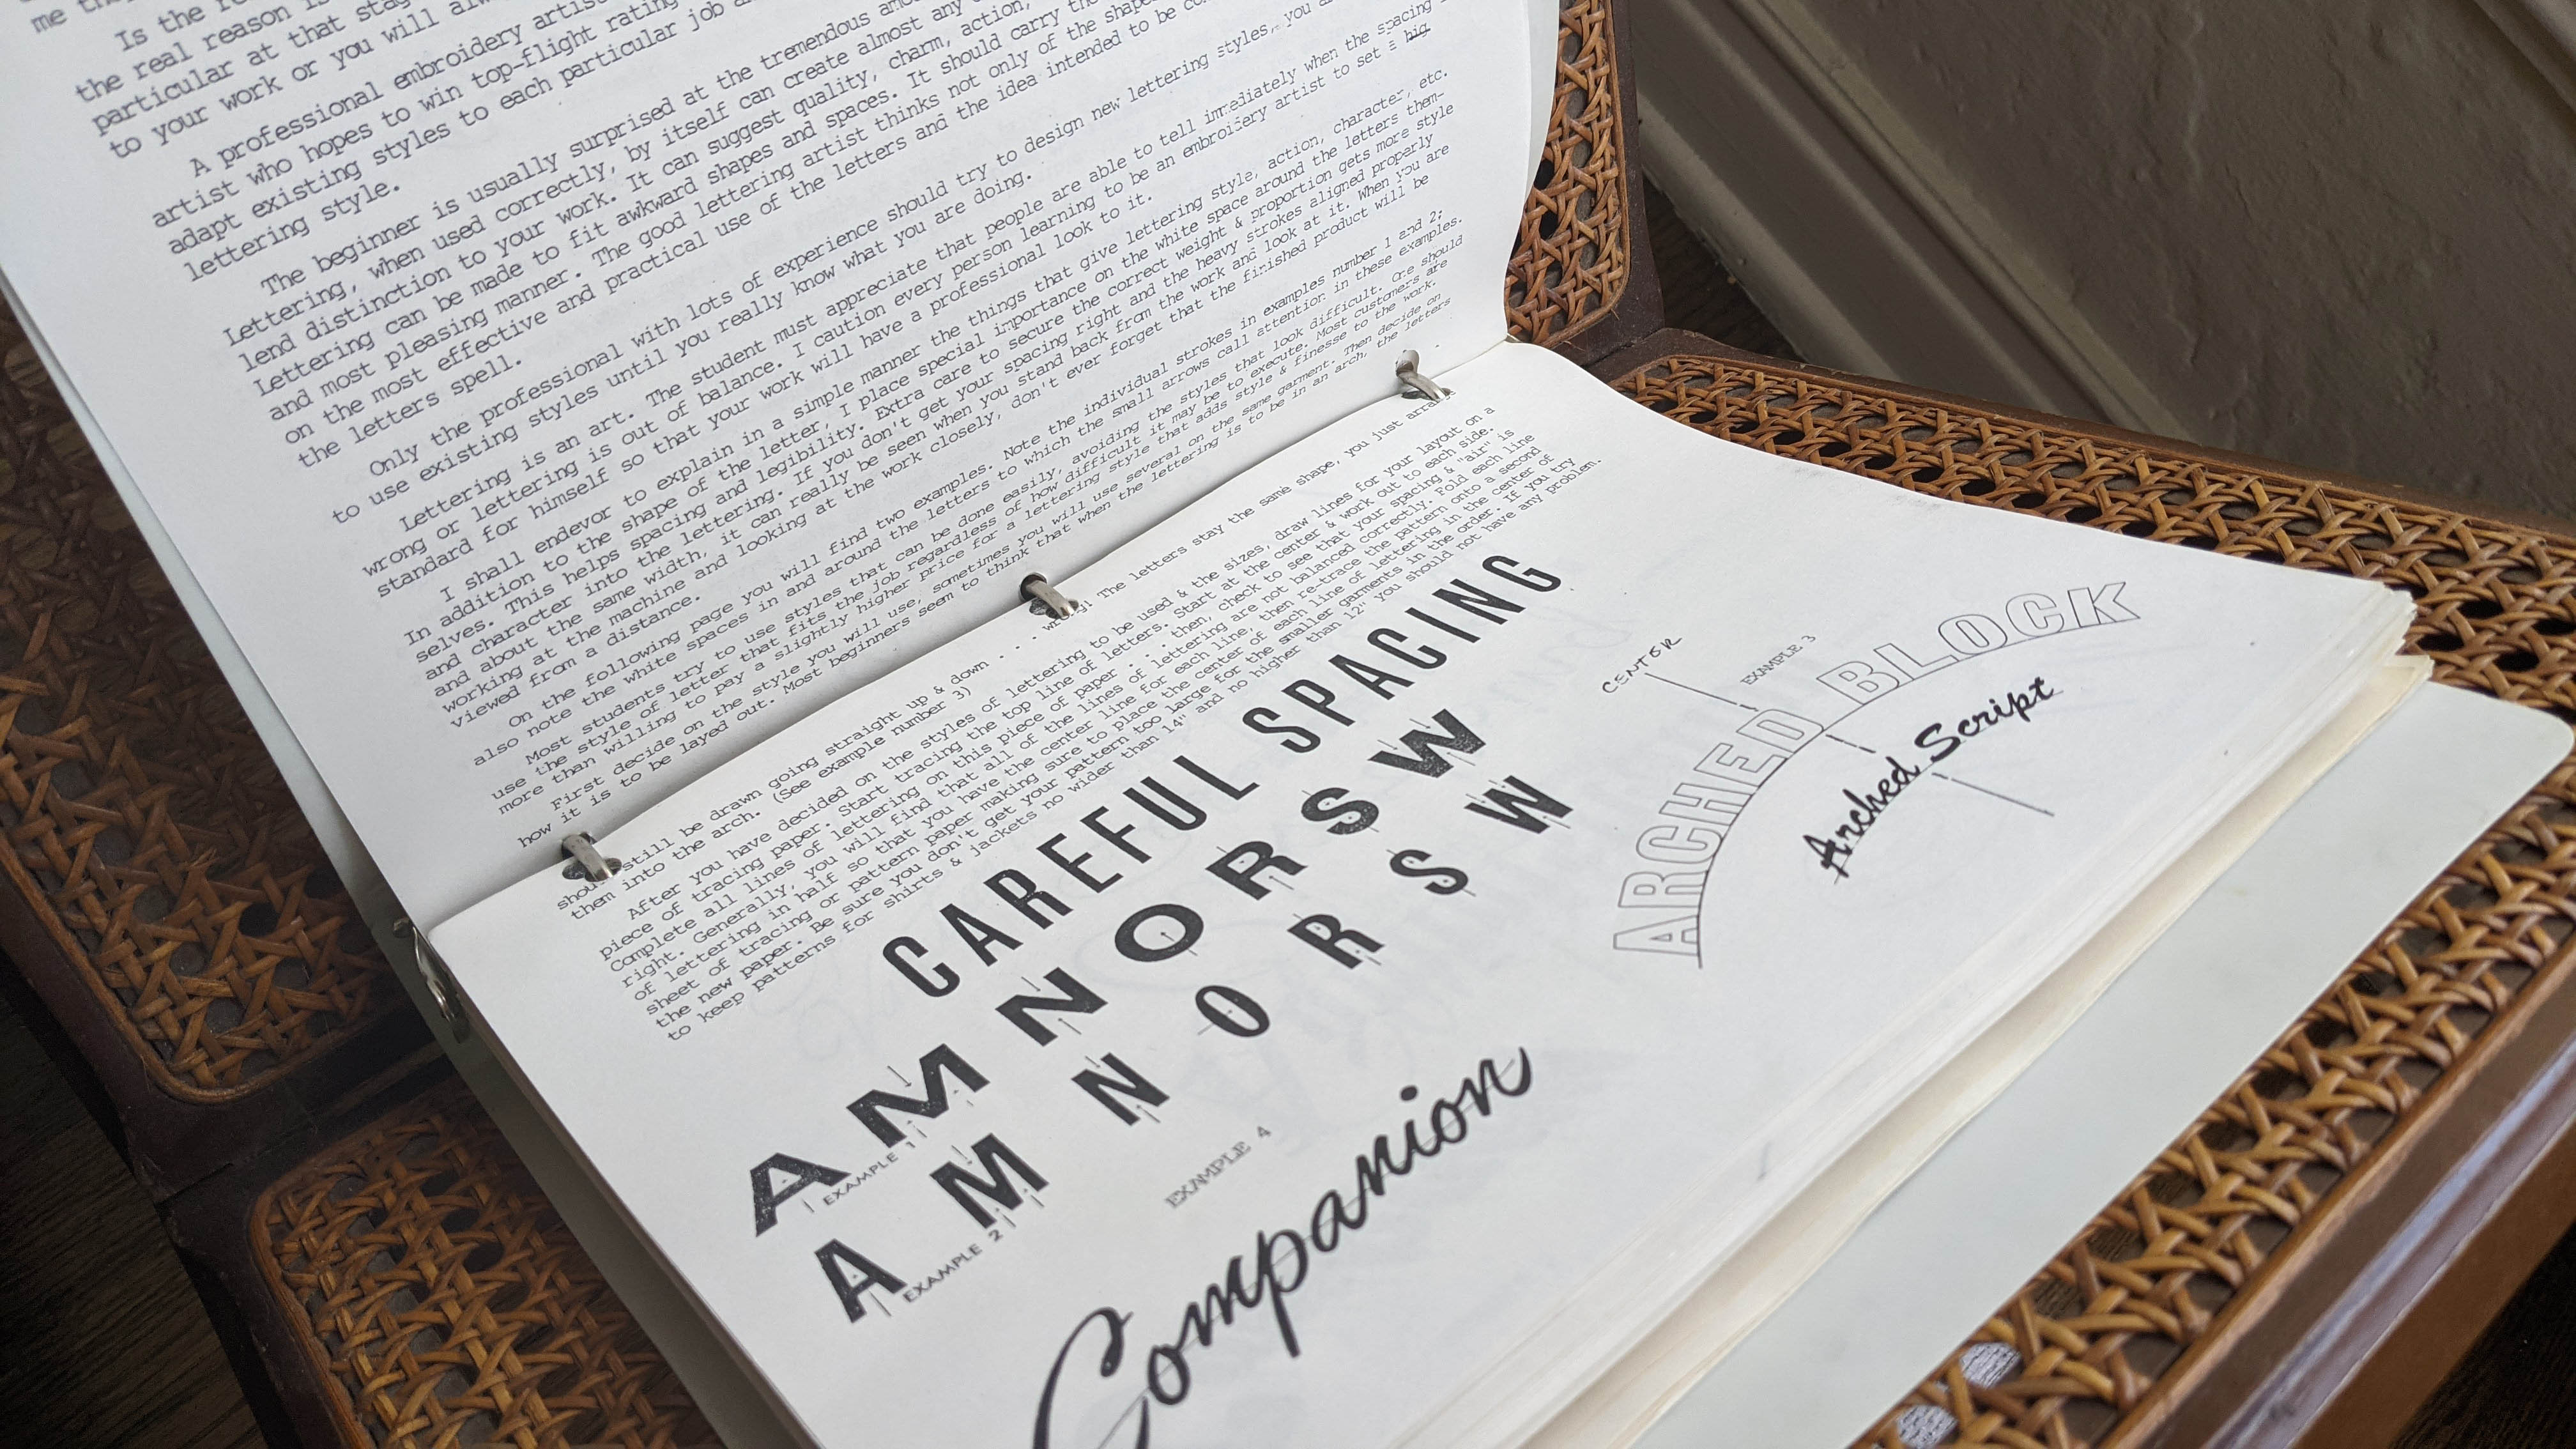 me
Is the
the real reason is
particular at that stag
to your work or you will
A professional embroidery artis
artist who hopes to win top-flight rating
adapt existing styles to each particular job a
lettering style.
The beginner is usually surprised at the tremendous
Lettering, when used correctly, by itself can create almost any
lend distinction to your work. It can suggest quality, charm, action,
Lettering can be made to fit awkward shapes and spaces. It should carry
and most pleasing manner. The good lettering artist thinks not only of the shape
on the most effective and practical use of the letters and the idea intended to be
the letters spell.
Only the professional with lots of experience should try to design new lettering styles, you
to use existing styles until you really know what you are doing.
Lettering is an art. The student must appreciate that people are able to tell immediately when the spacing
wrong or lettering is out of balance. I caution every person learning to be an embroidery artist to set a hig
standard for himself so that your work will have a professional look to it.
I shall endevor to explain in a simple manner the things that give lettering style, action, character, etc.
In addition to the shape of the letter, I place special importance on the white space around the letters them-
selves. This helps spacing and legibility. Extra care to secure the correct weight & proportion gets more style
and character into the lettering. If you don't get your spacing right and the heavy strokes aligned properly
and about the same width, it can really be seen when you stand back from the work and look at it. When you are
working at the machine and looking at the work closely, don't ever forget that the finished product will be
viewed from a distance.
On the following page you will find two examples. Note the individual strokes in examples number 1 and 2;
also note the white spaces in and around the letters to which the small arrows call attention in these examples.
Most students try to use styles that can be done easily, avoiding the styles that look difficult. One should
use the style of letter that fits the job regardless of how difficult it may be to execute. Most customers are
more than willing to pay a slightly higher price for a lettering style that adds style & finesse to the work.
First decide on the style you will use, sometimes you will use several on the same garment. Then decide on
how it is to be layed out. Most beginners seem to think that when the lettering is to be in an arch, the letters
still be drawn going straight up & down . . . wrong! The letters stay the same shape, you just
them into the arch. (See example number 3)
After you have decided on the styles of lettering to be used & the sizes, draw lines for your layout on a
piece of tracing paper. Start tracing the top line of letters. Start at the center & work out to each side.
Complete all lines of lettering on this piece of paper . . . then, check to see that your spacing & "air" is
right. Generally, you will find that all of the lines of lettering are not balanced correctly. Fold each line
of lettering in half so that you have the center line for each line, then re-trace the pattern onto a second
sheet of tracing or pattern paper making sure to place the center of each line of lettering in the center of
the new paper. Be sure you don't get your pattern too large for the smaller garments in the order. If you try
to keep patterns for shirts & jackets no wider than 14" and no higher than 12" you should not have any problem.
CAREFUL SPACING
A M N O R S W
EXAMPLE 1
A M N O R S W
EXAMPLE 2
CENTOR
EXAMPLE 3
ARCHED BLOCK
Arched Script
EXAMPLE 4
Companion